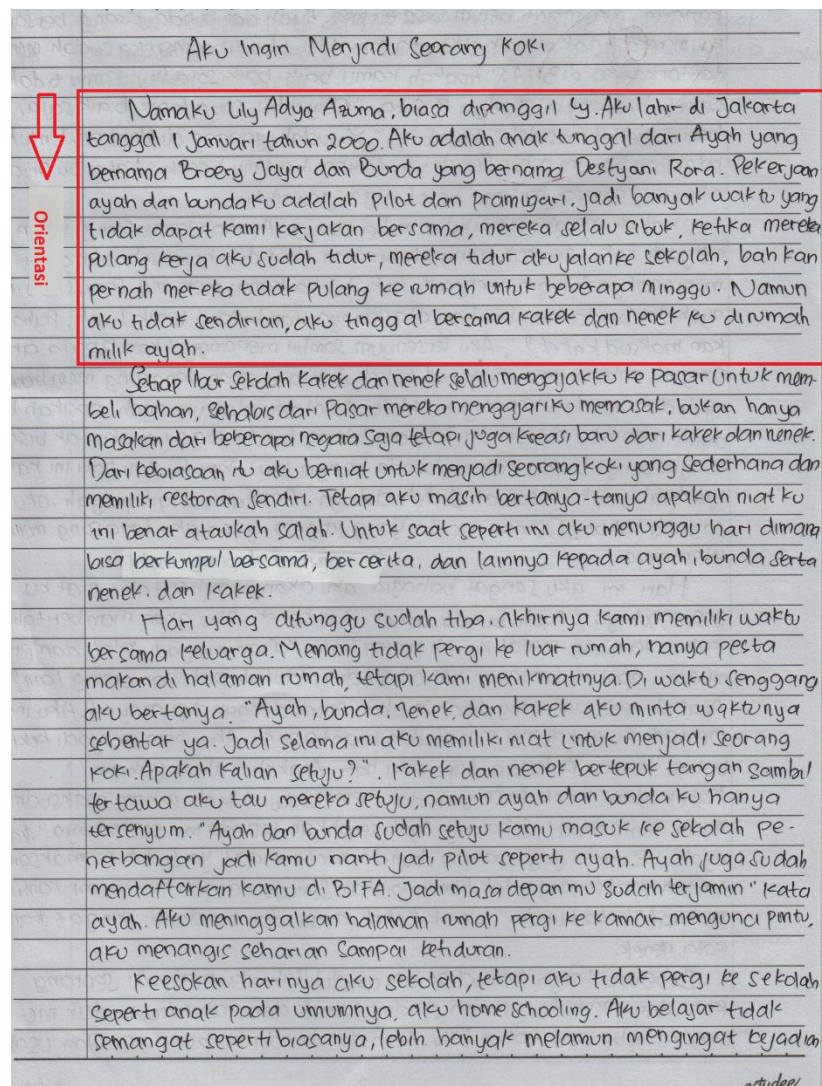 Aku Ingin Menjadi Seorang Koki
Namaku Lily Adya Azuma, biasa dipanggil Ly. Aku lahir di Jakarta
tanggal 1 Januari tahun 2000. Aku adalah anak tunggal dari Ayah yang
bernama Broery Jaya dan Bunda yang bernama Destyani Rora. Pekerjaan
ayah dan bundaku adalah Pilot dan Pramugari, jadi banyak waktu yang
tidak dapat kami kerjakan bersama, mereka selalu sibuk, ketika mereka
pulang kerja aku sudah tidur, mereka tidur aku jalan ke sekolah, bahkan
pernah mereka tidak pulang ke rumah untuk beberapa minggu. Namun
aku tidak sendirian, aku tinggal bersama kakek dan nenek ku dirumah
milik ayah.
Orientasi
Setiap libur sekolah kakek dan nenek selalu mengajakku ke pasar untuk mem-
beli bahan, sehabis dari Pasar mereka mengajariku memasak, bukan hanya
masakan dari beberapa negara saja tetapi juga kreasi baru dari kakek dan nenek.
Dari kebiasaan itu aku berniat untuk menjadi seorang koki yang sederhana dan
memiliki restoran sendiri. Tetapi aku masih bertanya-tanya apakah niat ku
ini benar ataukah salah. Untuk saat seperti ini aku menunggu hari dimana
bisa berkumpul bersama, bercerita, dan lainnya kepada ayah, bunda serta
nenek, dan kakek.
Hari yang ditunggu sudah tiba, akhirnya kami memiliki waktu
bersama keluarga. Menang tidak pergi ke luar rumah, hanya pesta
makan di halaman rumah, tetapi kami menikmatinya. Di waktu senggang
aku bertanya. "Ayah, bunda, nenek, dan kakek aku minta waktunya
sebentar ya. Jadi selama ini aku memiliki niat untuk menjadi seorang
koki. Apakah kalian setuju?". Kakek dan nenek bertepuk tangan sambil
tertawa aku tau mereka setuju, namun ayah dan bunda ku hanya
tersenyum. "Ayah dan bunda sudah setuju kamu masuk ke sekolah pe-
nerbangan jadi kamu nanti jadi pilot seperti ayah. Ayah juga sudah
mendaftarkan kamu di BIFA. Jadi masa depan mu sudah terjamin" kata
ayah. Aku meninggalkan halaman rumah pergi ke kamar mengunci pintu,
aku menangis seharian sampai ketiduran.
Keesokan harinya aku sekolah, tetapi aku tidak pergi ke sekolah
seperti anak pada umumnya, aku home schooling. Aku belajar tidak
semangat seperti biasanya, lebih banyak melamun mengingat kejadian